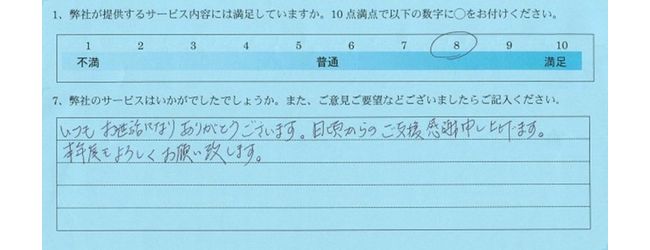 1、弊社が提供するサービス内容には満足していますか。10点満点で以下の数字に○をお付けください。
1 2 3 4 5 6 7 8 9 10
不満 普通 満足
7、弊社のサービスはいかがでしたでしょうか。また、ご意見ご要望などございましたらご記入ください。
いつも お世話になり ありがとうございます。日頃からのご支援感謝申し上げます。
本年度もよろしくお願い致します。